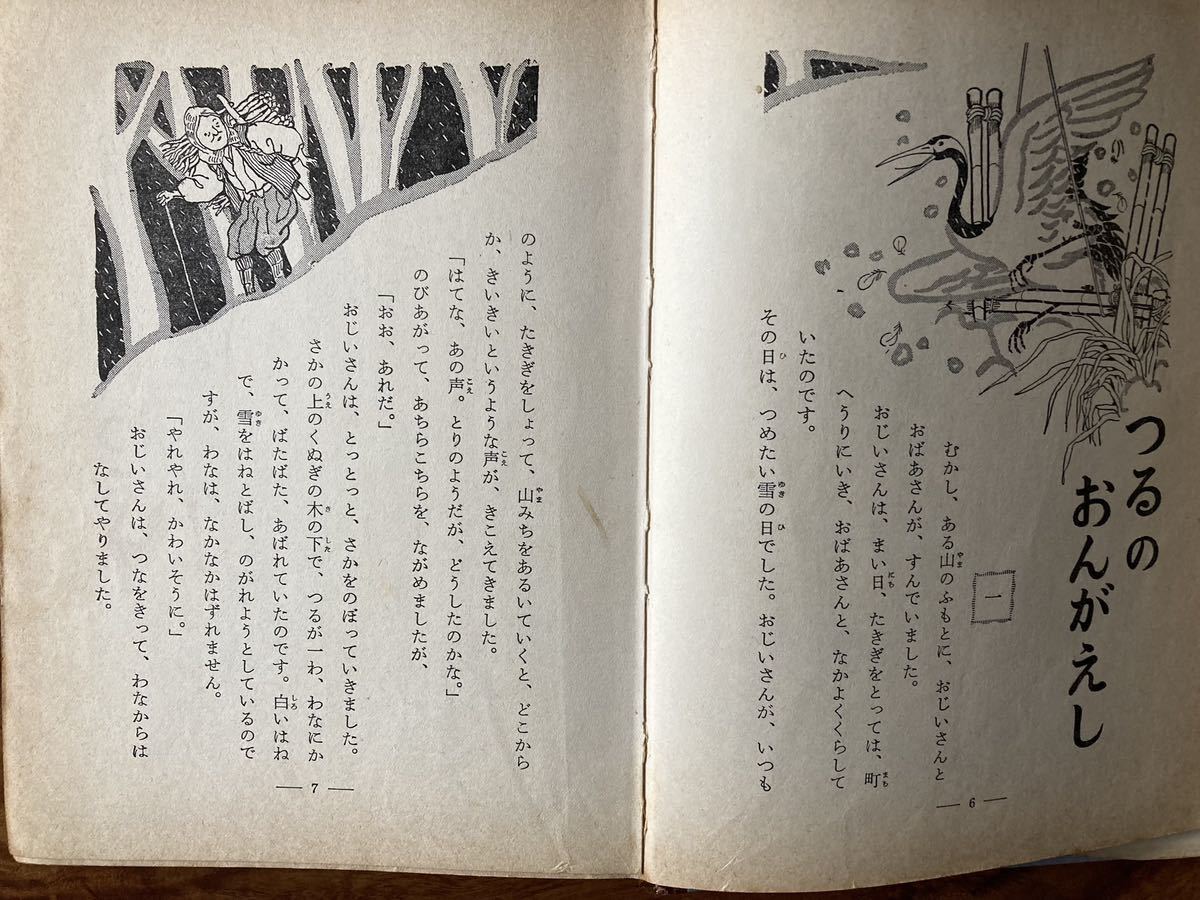 つるの
おんがえし
一
むかし、ある山のふもとに、おじいさんと
おばあさんが、すんでいました。
おじいさんは、まい日、たきぎをとっては、町
へうりにいき、おばあさんと、なかよくくらして
いたのです。
その日は、つめたい雪の日でした。おじいさんが、いつも
— 6 —
のように、たきぎをしょって、山みちをあるいていくと、どこから
か、きいきいというような声が、きこえてきました。
「はてな、あの声。とりのようだが、どうしたのかな。」
のびあがって、あちらこちらを、ながめましたが、
「おお、あれだ。」
おじいさんは、とっとっと、さかをのぼっていきました。
さかの上のくぬぎの木の下で、つるが一わ、わなにか
かって、ばたばた、あばれていたのです。白いはね
で、雪をはねとばし、のがれようとしているので
すが、わなは、なかなかはずれません。
「やれやれ、かわいそうに。」
おじいさんは、つなをきって、わなからは
なしてやりました。
— 7 —